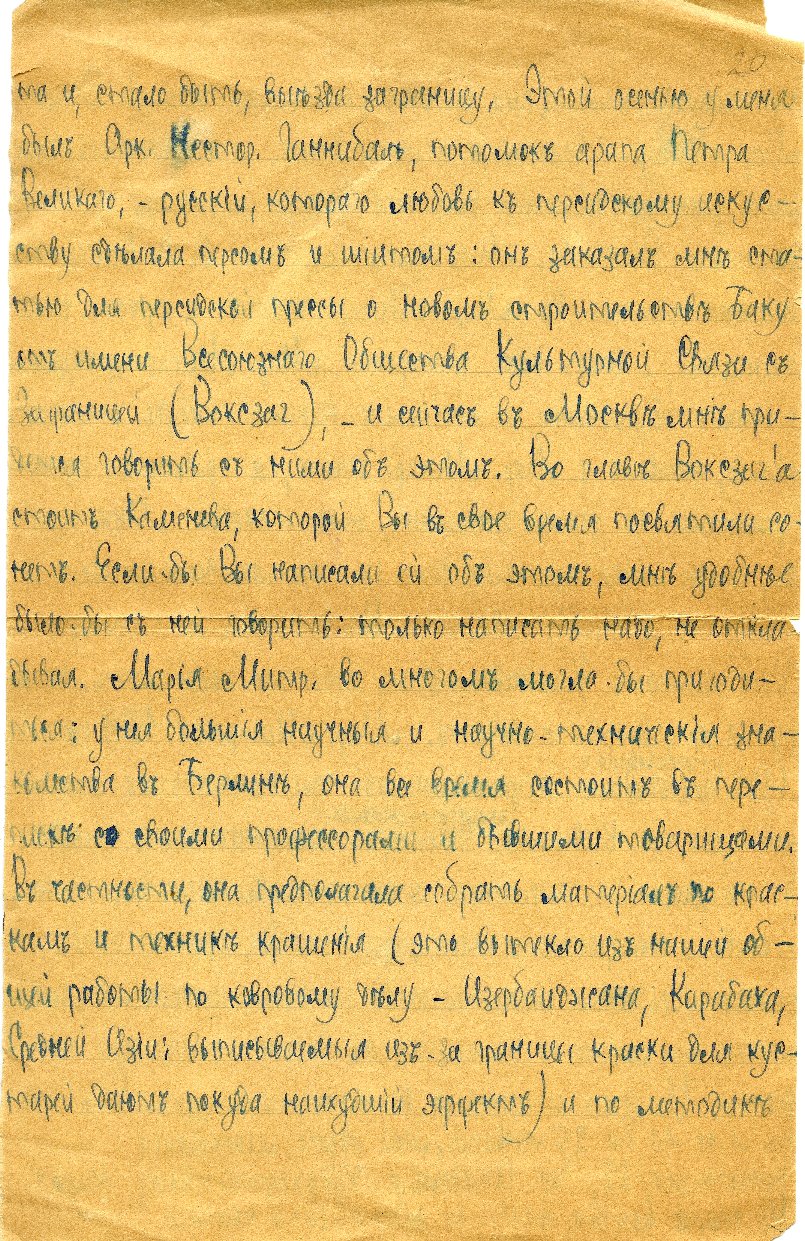 20
та и, стало быть, выѣзда заграницу. Этой осенью у меня
былъ Арк. Нестор. Ганнибалъ, потомокъ арапа Петра
Великаго, - русскій, котораго любовь къ персидскому искус-
ству сдѣлала персомъ и шіитомъ: онъ заказалъ мнѣ ста-
тью для персидской прессы о новомъ строительствѣ Баку
отъ имени Всесоюзнаго Общества Культурной Связи съ
Заграницей (Воксзаг), - и сейчасъ въ Москвѣ мнѣ при-
дется говорить съ ними объ этомъ. Во главѣ Воксзаг'а
стоитъ Каменева, которой Вы въ свое время посвятили со-
нетъ. Если-бы Вы написали ей объ этомъ, мнѣ удобнѣе
было-бы съ ней говорить: только написать надо, не откла
дывая. Марія Митр. во многомъ могла-бы пригоди-
ться: у нея большія научныя и научно-техническія зна-
комства въ Берлинѣ, она все время состоитъ въ пере-
пискѣ со своими профессорами и бывшими товарищами.
Въ частности, она предполагала собрать матеріалъ по крас-
камъ и техникѣ крашенія (это вытекло изъ нашей об-
щей работы по ковровому дѣлу - Изербайджана, Карабаха,
Средней Изіи: выписываемыя изъ-за границы краски для кус-
тарей даютъ покуда наихудшій эффектъ) и по методикѣ